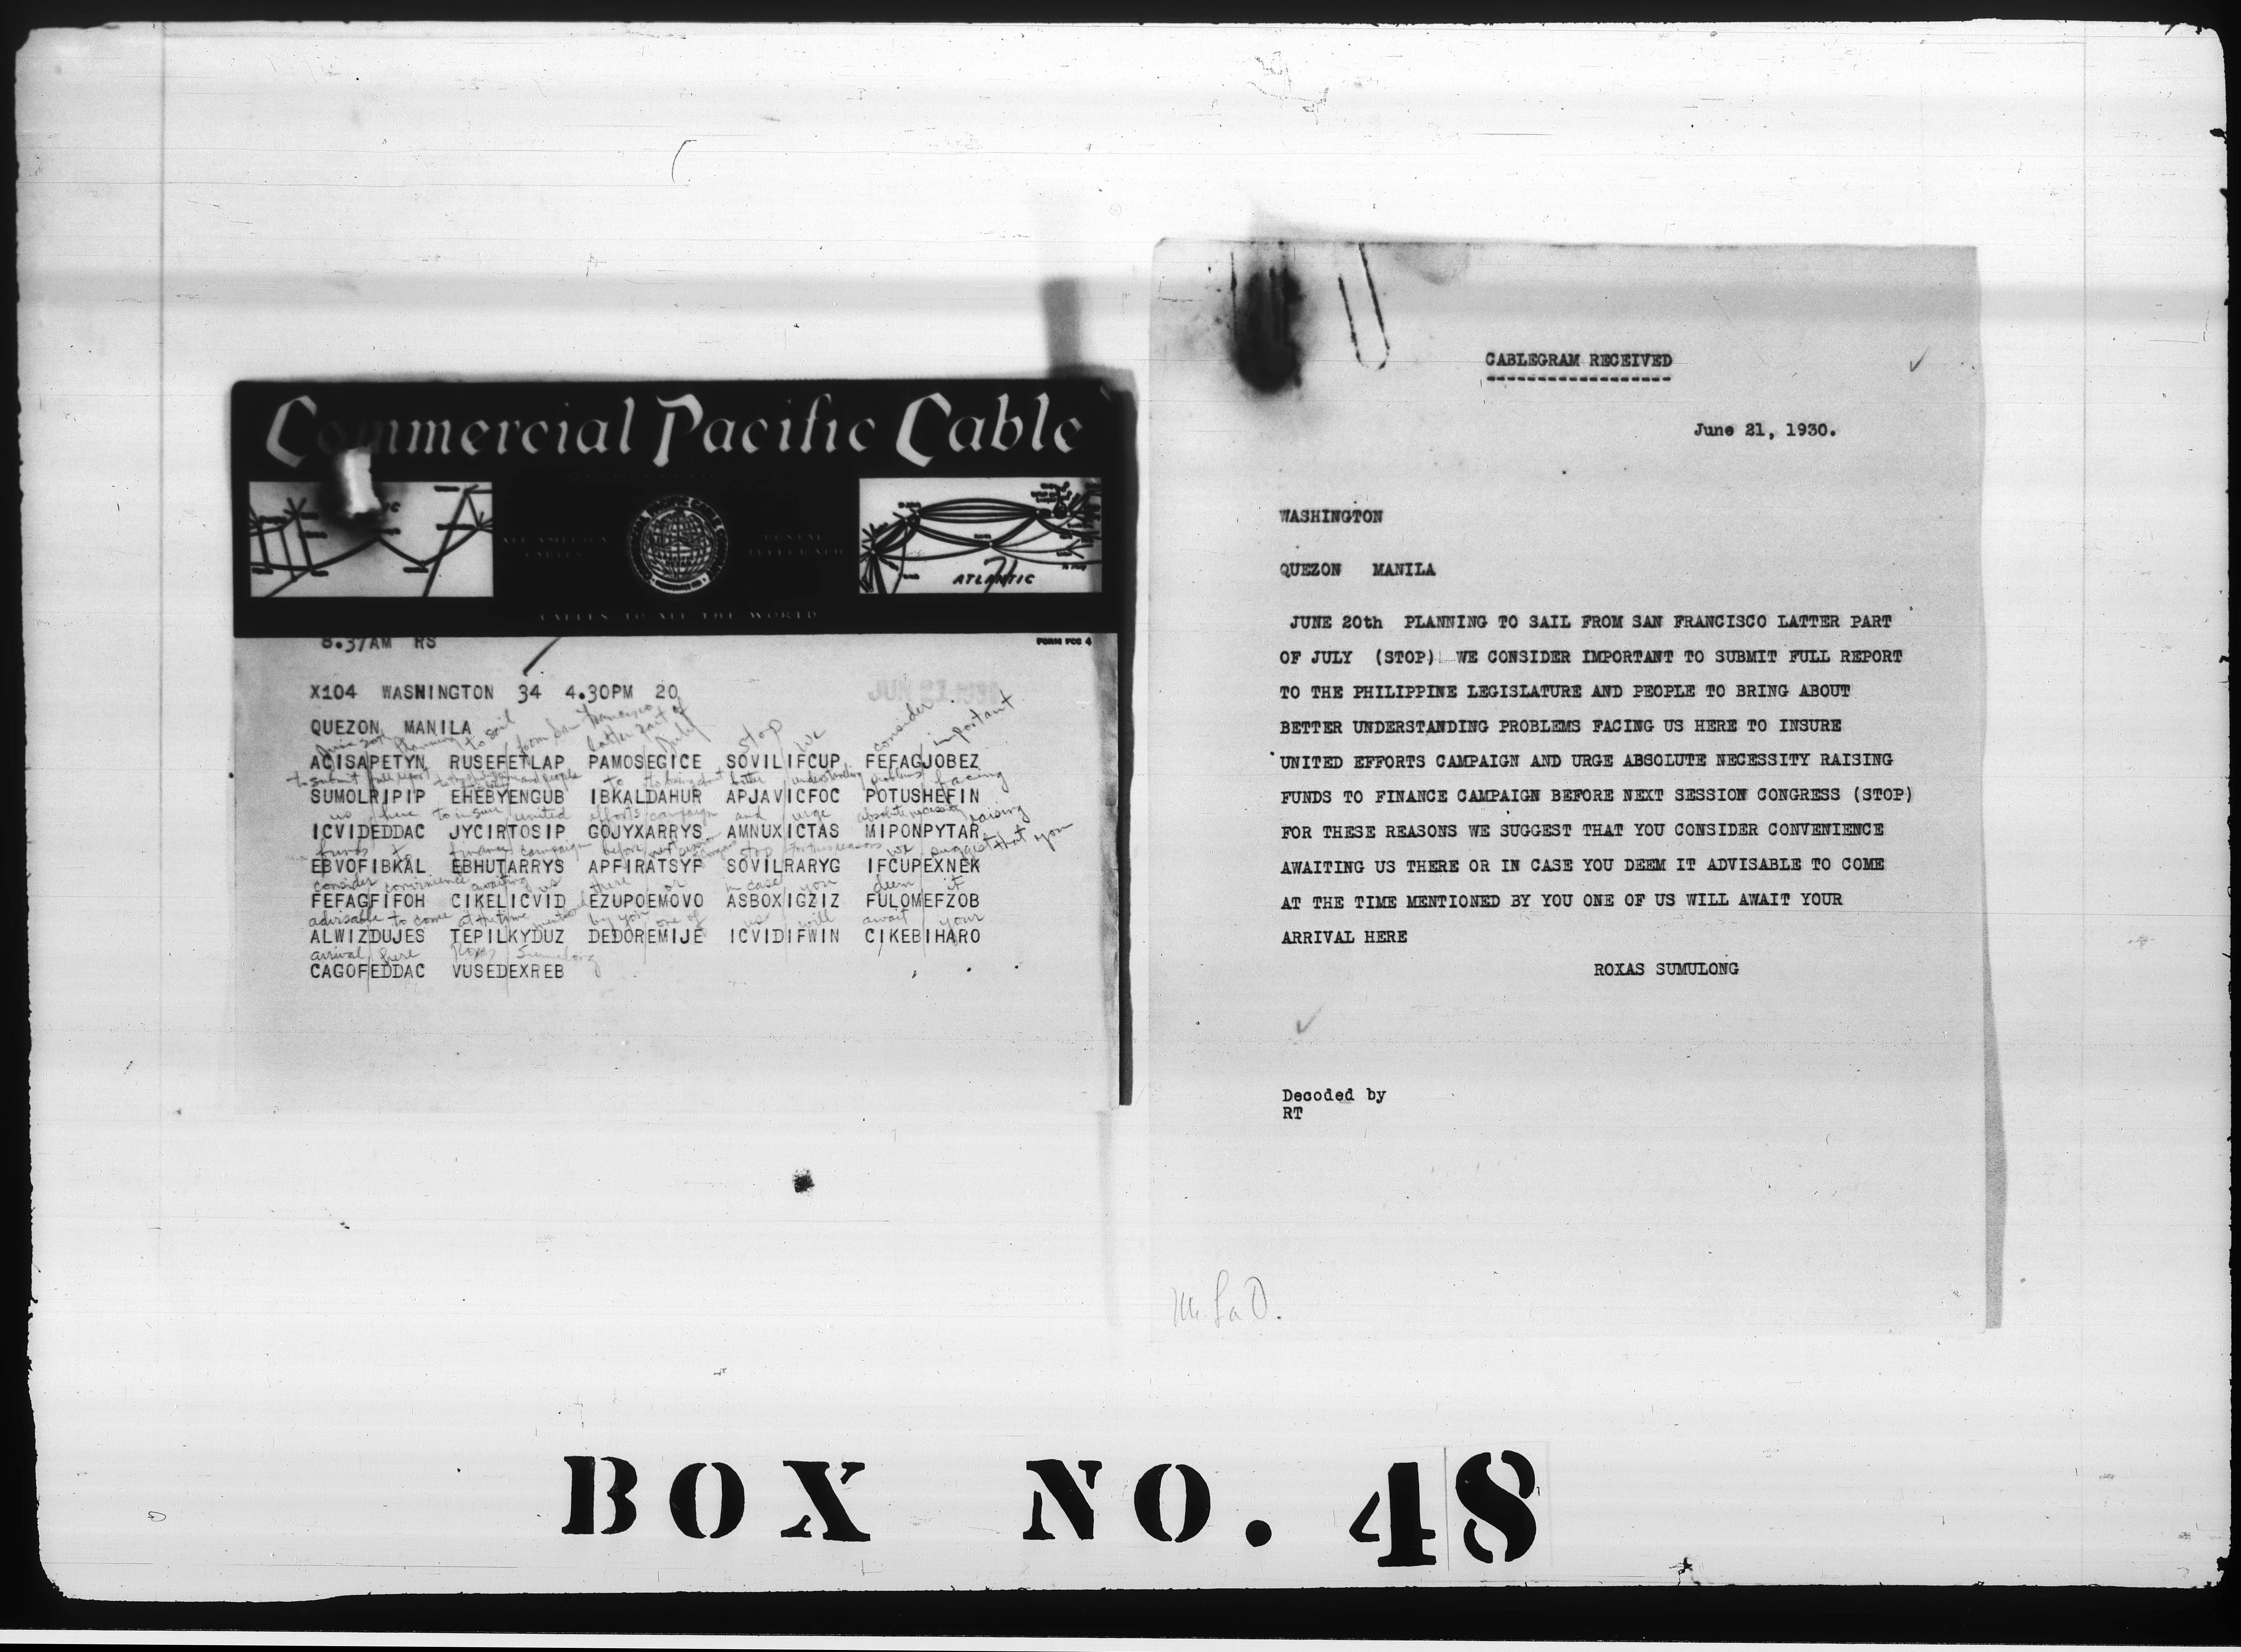 Commercial Pacific Cable
ALL AMERICA CABLES
POSTAL TELEGRAPH
ATLANTIC
CABLES TO ALL THE WORLD
8.37AM RS
FORM PCC 4
X104 WASHINGTON 34 4.30PM 20
QUEZON MANILA
June 20th planning to sail from San Francisco latter part of July stop we consider important
ACISAPETYN RUSEFETLAP PAMOSEGICE SOVILIFCUP FEFAGJOBEZ
to submit full report to the and people to bring about better understanding problems facing
SUMOLRIPIP EHEBYENGUB IBKALDAHUR APJAVICFOC POTUSHEFIN
us here to insure united efforts campaign and urge absolute necessity raising
ICVIDEDDAC JYCIRTOSIP GOJYXARRYS AMNUXICTAS MIPONPYTAR
funds to finance campaign before next session congress stop for these reasons we suggest that you
EBVOFIBKAL EBHUTARRYS APFIRATSYF SOVILRARYG IFCUPEXNEK
consider convenience awaiting us there or in case you deem it
FEFAGFIFOH CIKELICVID EZUPOEMOVO ASBOXIGZIZ FULOMEFZOB
advisable to come at the time mentioned by you one of us will await your
ALWIZDUJES TEPILKYDUZ DEDOREMIJE ICVIDIFWIN CIKEBIHARO
arrival here Roxas Sumulong
CAGOFEDDAC VUSEDEXREB
CABLEGRAM RECEIVED
June 21, 1930.
WASHINGTON
QUEZON MANILA
JUNE 20th PLANNING TO SAIL FROM SAN FRANCISCO LATTER PART
OF JULY (STOP) WE CONSIDER IMPORTANT TO SUBMIT FULL REPORT
TO THE PHILIPPINE LEGISLATURE AND PEOPLE TO BRING ABOUT
BETTER UNDERSTANDING PROBLEMS FACING US HERE TO INSURE
UNITED EFFORTS CAMPAIGN AND URGE ABSOLUTE NECESSITY RAISING
FUNDS TO FINANCE CAMPAIGN BEFORE NEXT SESSION CONGRESS (STOP)
FOR THESE REASONS WE SUGGEST THAT YOU CONSIDER CONVENIENCE
AWAITING US THERE OR IN CASE YOU DEEM IT ADVISABLE TO COME
AT THE TIME MENTIONED BY YOU ONE OF US WILL AWAIT YOUR
ARRIVAL HERE
ROXAS SUMULONG
Decoded by
RT
BOX NO. 48